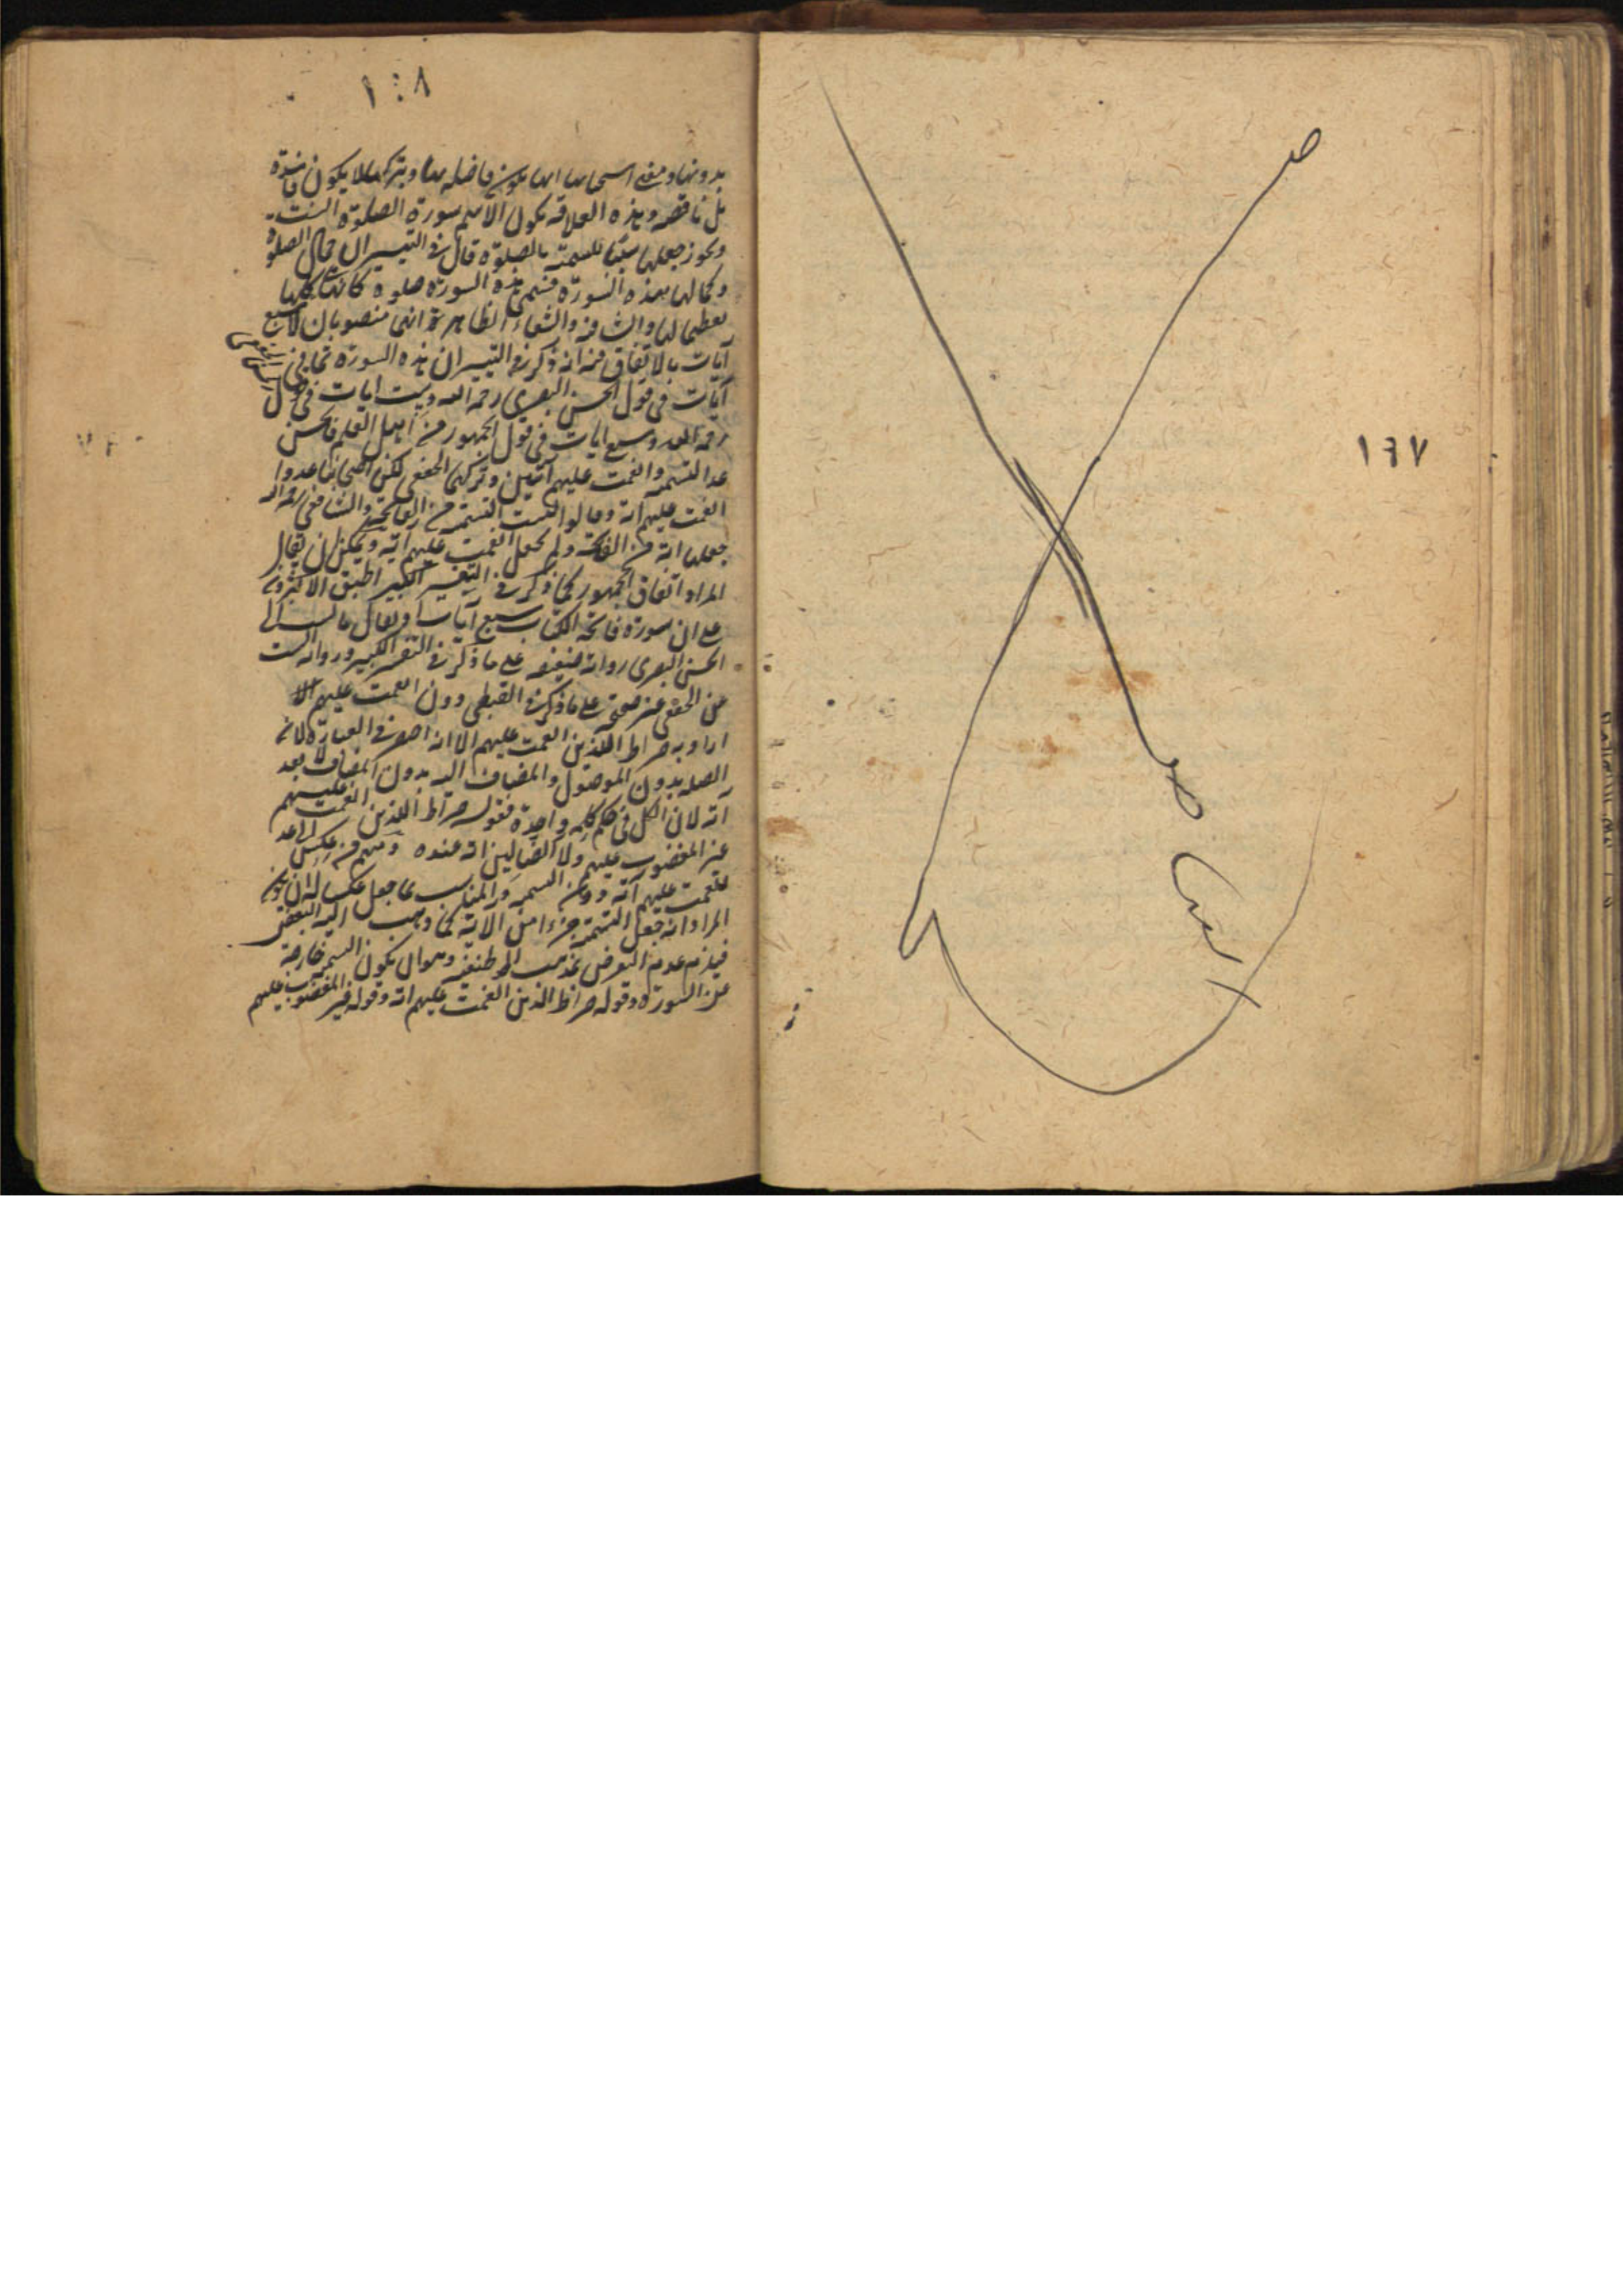 ١٦٧
١٠٨
بدونها ومعنى انها فاضله بها وبتركها لا يكون فاسدة
بل ناقصه وبهذه العلاقه يكون الاسم سورة الصلوة
ويجوز جعلها للتسمية بالصلوة قال فى التيسير ان الصلوة
وكمالها بهذه السورة هذه السورة صلوة كانها كلها
تعظيما لها والشافيه والشفاء الظاهر انهما منصوبان لا سبع
آيات بالاتفاق انه ذكر فى التيسير ان هذه السورة ثمانى
آيات فى قول الحسن البصرى رحمه الله وست ايات فى قول
رحمه الله وسبع ايات فى قول الجمهور من اهل العلم فالحسن
عد التسميه وانعمت عليهم آيتين وتركهما الجعفى لكن عدوا
انعمت عليهم آية وقالوا ليست التسمية من الفاتحة والشافعى رحمه الله
جعلها آية من الفاتحة ولم يجعل انعمت عليهم آية ويمكن ان يقال
المراد اتفاق الجمهور كما ذكر فى التفسير الكبير اطبق الاكثرون
على ان سورة فاتحة الكتاب سبع آيات او يقال ما نسب الى
الحسن البصرى رواية ضعيفه على ما ذكر فى التفسير الكبير ورواية الست
عن الجعفى غير على ما ذكره القرطبى دون انعمت عليهم الا
اراد به صراط الذين انعمت عليهم الا انه اختصر فى العبارة لان
الصلة بدون الموصول والمضاف اليه بدون المضاف لا يعد
آية لان الكل فى حكم كلمة واحدة فقوله صراط الذين انعمت عليهم
غير المغضوب عليهم ولا الضالين آية عنده ومنهم من عكس اى عد
انعمت عليهم آية دون التسميه والمناسب بما جعل عكسا له ان يكون
المراد انه جعل التسمية جزءا من الآية كما ذهب اليه البعض
فيلزم عدم التعرض لمذهب ابى حنيفه وهو ان يكون التسميه خارجة
عن السورة وقوله صراط الذين انعمت عليهم آية وقوله غير المغضوب عليهم